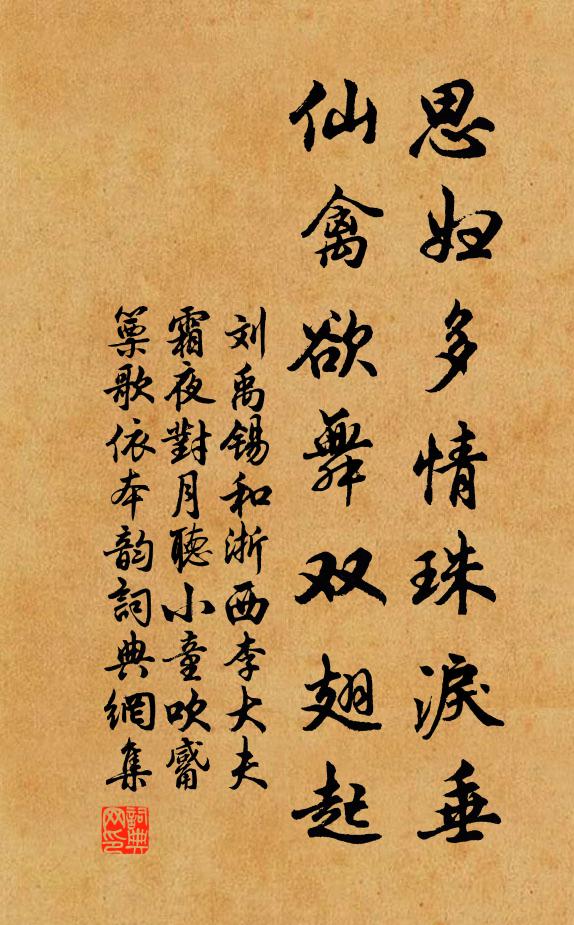 思妇多情珠淚垂
仙禽欲舞双翅起
刘禹锡和浙西李大夫
霜夜對月聽小童吹觱
篥歌依本韵詞典網集
詞典
网印